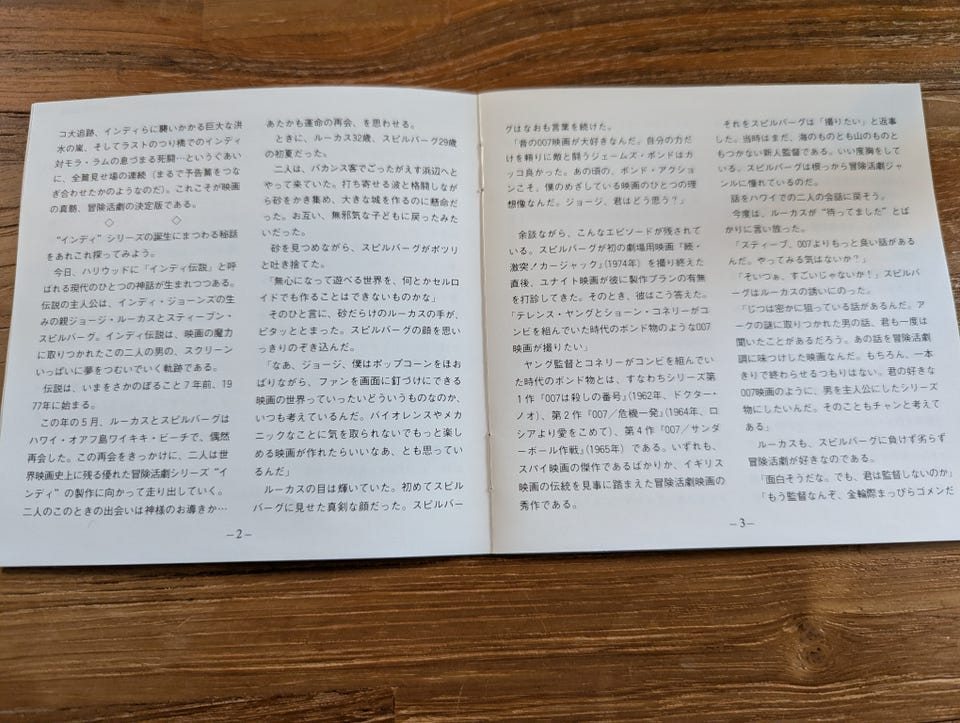 コ大追跡、インディらに襲いかかる巨大な洪
水の嵐、そしてラストのつり橋でのインディ
対モラ・ラムの息づまる死闘…というぐあい
に、全篇見せ場の連続（まるで予告篇をつな
ぎ合わせたかのようなのだ）。これこそが映画
の真髄、冒険活劇の決定版である。
◇ ◇
“インディ”シリーズの誕生にまつわる秘話
をあれこれ探ってみよう。
今日、ハリウッドに「インディ伝説」と呼
ばれる現代のひとつの神話が生まれつつある。
伝説の主人公は、インディ・ジョーンズの生
みの親ジョージ・ルーカスとスティーブン・
スピルバーグ。インディ伝説は、映画の魔力
に取りつかれたこの二人の男の、スクリーン
いっぱいに夢をつむいでいく軌跡である。
伝説は、いまをさかのぼること7年前、19
77年に始まる。
この年の5月、ルーカスとスピルバーグは
ハワイ・オアフ島ワイキキ・ビーチで、偶然
再会した。この再会をきっかけに、二人は世
界映画史上に残る優れた冒険活劇シリーズ“イ
ンディ”の製作に向かって走り出していく。
二人のこのときの出会いは神様のお導きか…
あたかも運命の再会、を思わせる。
ときに、ルーカス32歳、スピルバーグ29歳
の初夏だった。
二人は、バカンス客でごったがえす浜辺へと
やって来ていた。打ち寄せる波と格闘しなが
ら砂をかき集め、大きな城を作るのに懸命だ
った。お互い、無邪気な子どもに戻ったみた
いだった。
砂を見つめながら、スピルバーグがポツリ
と吐き捨てた。
「無心になって遊べる世界を、何とかセルロ
イドでも作ることはできないものかな」
そのひと言に、砂だらけのルーカスの手が、
ピタッととまった。スピルバーグの顔を思い
っきりのぞき込んだ。
「なあ、ジョージ、僕はポップコーンをほお
ばりながら、ファンを画面に釘づけにできる
映画の世界っていったいどういうものなのか、
いつも考えているんだ。バイオレンスやメカ
ニックなことに気を取られないでもっと楽し
める映画が作れたらいいなあ、とも思ってい
るんだ」
ルーカスの目は輝いていた。初めてスピル
バーグに見せた真剣な顔だった。スピルバー
—2—
グはなおも言葉を続けた。
「昔の007映画が大好きなんだ。自分の力だ
けを頼りに敵と闘うジェームズ・ボンドはカ
ッコ良かった。あの頃の、ボンド・アクショ
ンこそ、僕のめざしている映画のひとつの理
想像なんだ。ジョージ、君はどう思う？」
余談ながら、こんなエピソードが残されて
いる。スピルバーグが初の劇場用映画『続・
激突／カージャック』（1974年）を撮り終えた
直後、ユナイト映画が彼に製作プランの有無
を打診してきた。そのとき、彼はこう答えた。
「テレンス・ヤングとショーン・コネリーがコ
ンビを組んでいた時代のボンド物のような007
映画が撮りたい」
ヤング監督とコネリーがコンビを組んでい
た時代のボンド物とは、すなわちシリーズ第
1作『007は殺しの番号』（1962年、ドクター・
ノオ）、第2作『007／危機一発』（1964年、ロ
シアより愛をこめて）、第4作『007／サンダ
ーボール作戦』（1965年）である。いずれも、
スパイ映画の傑作であるばかりか、イギリス
映画の伝統を見事に踏まえた冒険活劇映画の
秀作である。
それをスピルバーグは「撮りたい」と返事
した。当時はまだ、海のものとも山のものと
もつかない新人監督である。いい度胸をして
いる。スピルバーグは根っから冒険活劇ジャ
ンルに憧れているのだ。
話をハワイでの二人の会話に戻そう。
今度は、ルーカスが“待ってました”とば
かりに言い放った。
「スティーブ、007よりもっと良い話がある
んだ。やってみる気はないか？」
「そいつぁ、すごいじゃないか！」スピルバ
ーグはルーカスの誘いにのった。
「じつは密かに狙っている話があるんだ。ア
ークの謎に取りつかれた男の話、君も一度は
聞いたことがあるだろう。あの話を冒険活劇
調に味つけした映画なんだ。もちろん、一本
きりで終わらせるつもりはない。君の好きな
007映画のように、男を主人公にしたシリーズ
物にしたいんだ。そのこともチャンと考えて
ある」
ルーカスも、スピルバーグに負けず劣らず
冒険活劇が好きなのである。
「面白そうだな。でも、君は監督しないのか」
「もう監督なんぞ、金輪際まっぴらゴメンだ
—3—